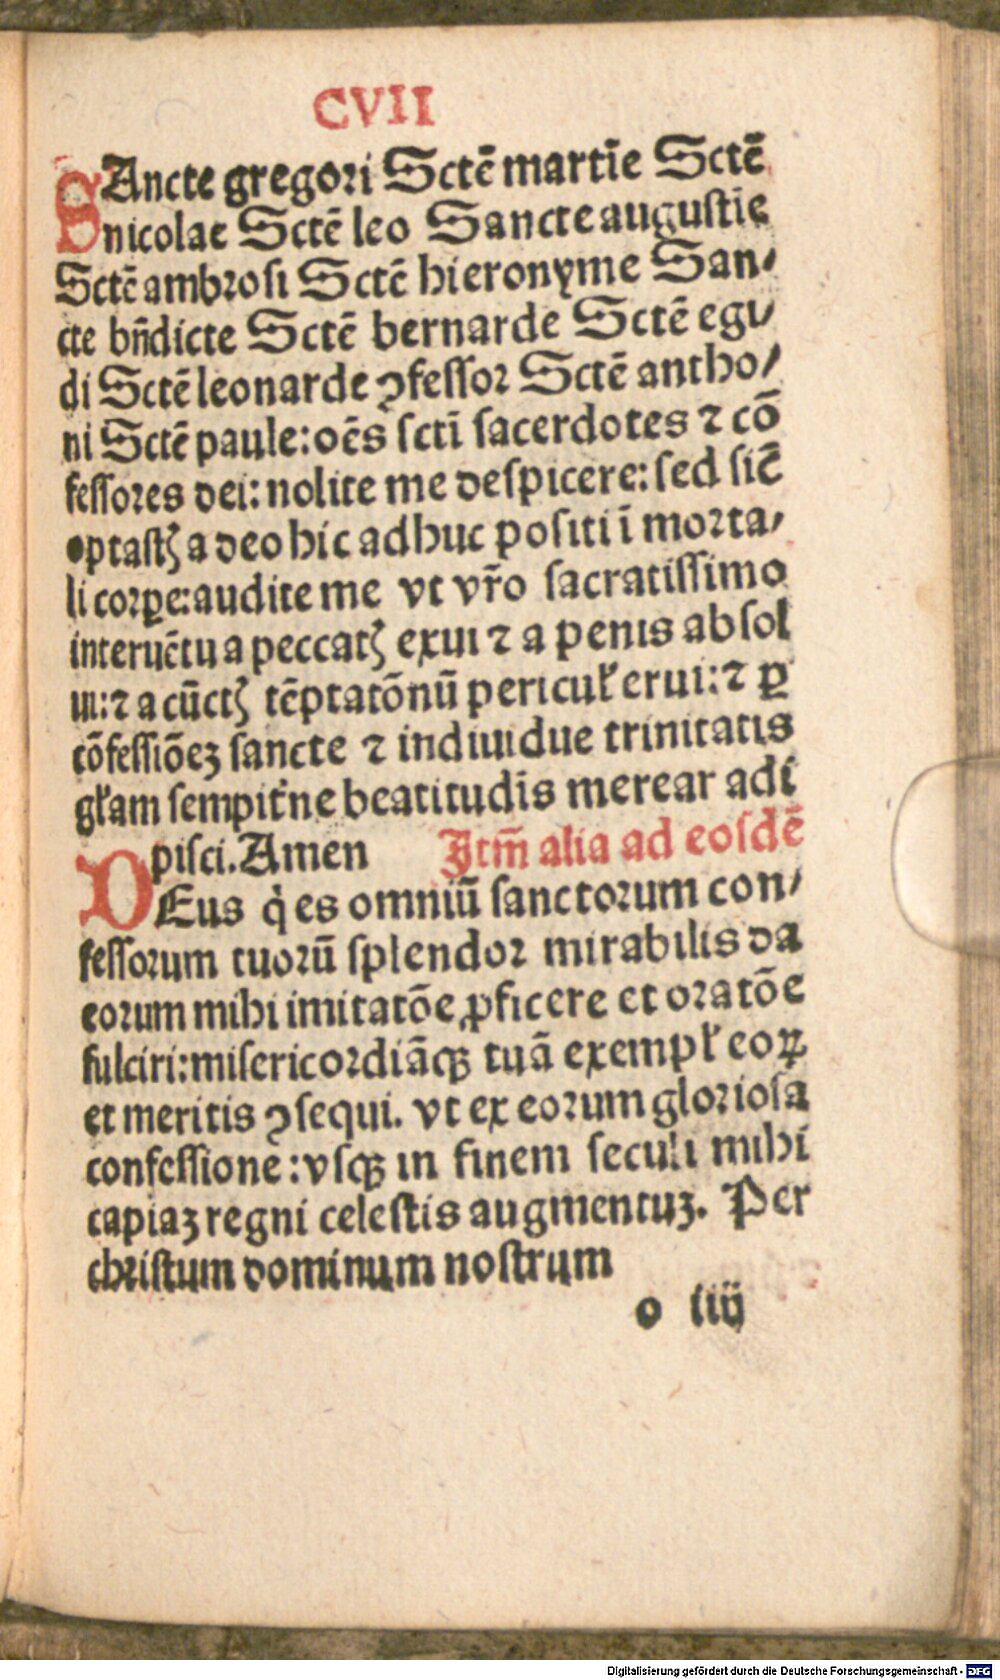 CVII
SAncte gregori Sctē martīe Sctē
nicolae Sctē leo Sancte augustīe
Sctē ambrosi Sctē hieronyme San⸗
cte bn̄dicte Sctē bernarde Sctē egi⸗
di Sctē leonarde ꝯfessor Sctē antho⸗
ni Sctē paule: oēs sctī sacerdotes ⁊ cō
fessores dei: nolite me despicere: sed sic̄
optastꝭ a deo hic adhuc positi ī morta⸗
li corꝑe: audite me vt vr̄o sacratissimo
interuētu a peccatꝭ exui ⁊ a penis absol
ui: ⁊ a cūctꝭ tēptatōnū pericul̛ erui: ⁊ ꝑ
cōfessiōeꝫ sancte ⁊ indiuidue trinitatis
gl̛am sempit̄ne beatitudīs merear adi
pisci. Amen Itm̄ alia ad eosdē
DEus q̇ es omniū sanctorum con⸗
fessorum tuorū splendor mirabilis da
eorum mihi imitatōe ꝓficere et oratōe
fulciri: misericordiāqꝫ tuā exempl̛ eoꝝ
et meritis ꝯsequi. vt ex eorum gloriosa
confessione: vsqꝫ in finem seculi mihi
capiaꝫ regni celestis augmentuꝫ. Per
christum dominum nostrum
o iiij
Digitalisierung gefördert durch die Deutsche Forschungsgemeinschaft - DFG